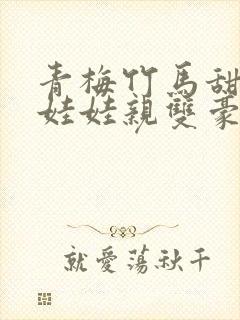 青梅竹馬甜
娃娃親雙豪
就愛蕩秋千